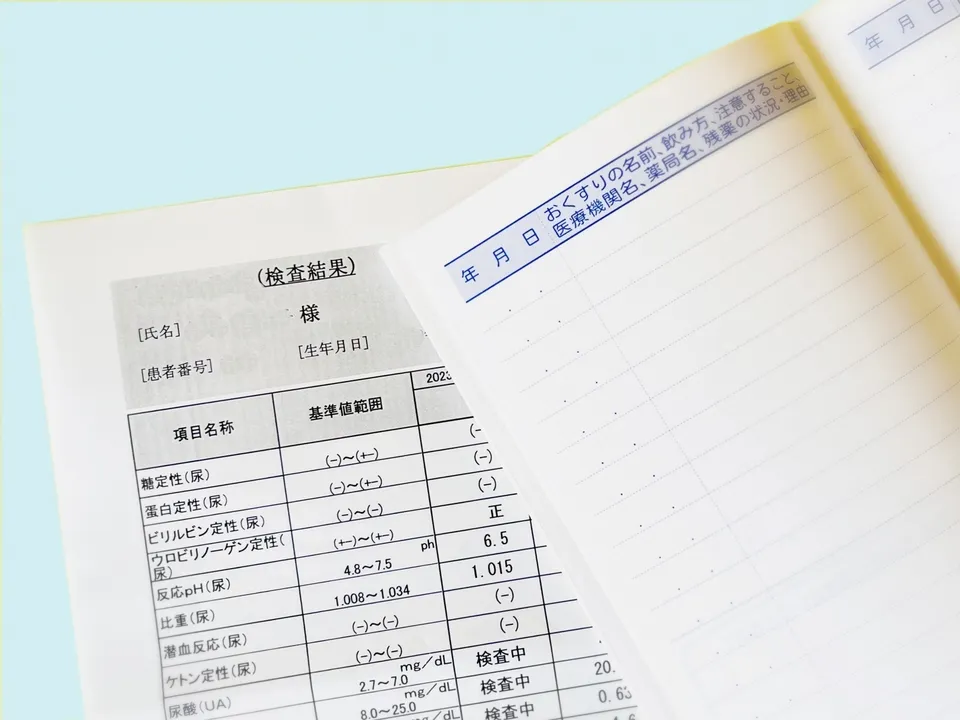 (検査結果)
様
[氏名]
[患者番号] [生年月日]
項目名称 基準値範囲
糖定性(尿) (−)～(+−) (−
蛋白定性(尿) (−)～(+−) (−)
ビリルビン定性(尿) (−)～(−) (−)
ウロビリノーゲン定性(尿) (+−)～(+−) 正
反応pH(尿) ph 4.8～7.5 6.5
比重(尿) 1.008～1.034 1.015
潜血反応(尿) (−)～(−) (−)
ケトン定性(尿) (−)～(−) (−)
尿酸(UA) mg/dL 2.7～7.0 検査中
mg/dL 8.0～25.0 検査中 20.
mg/dL 検査中 0.63
年 月 日
おくすりの名前、飲み方、注意すること、
医療機関名、薬局名、残薬の状況・理由
年 月 日